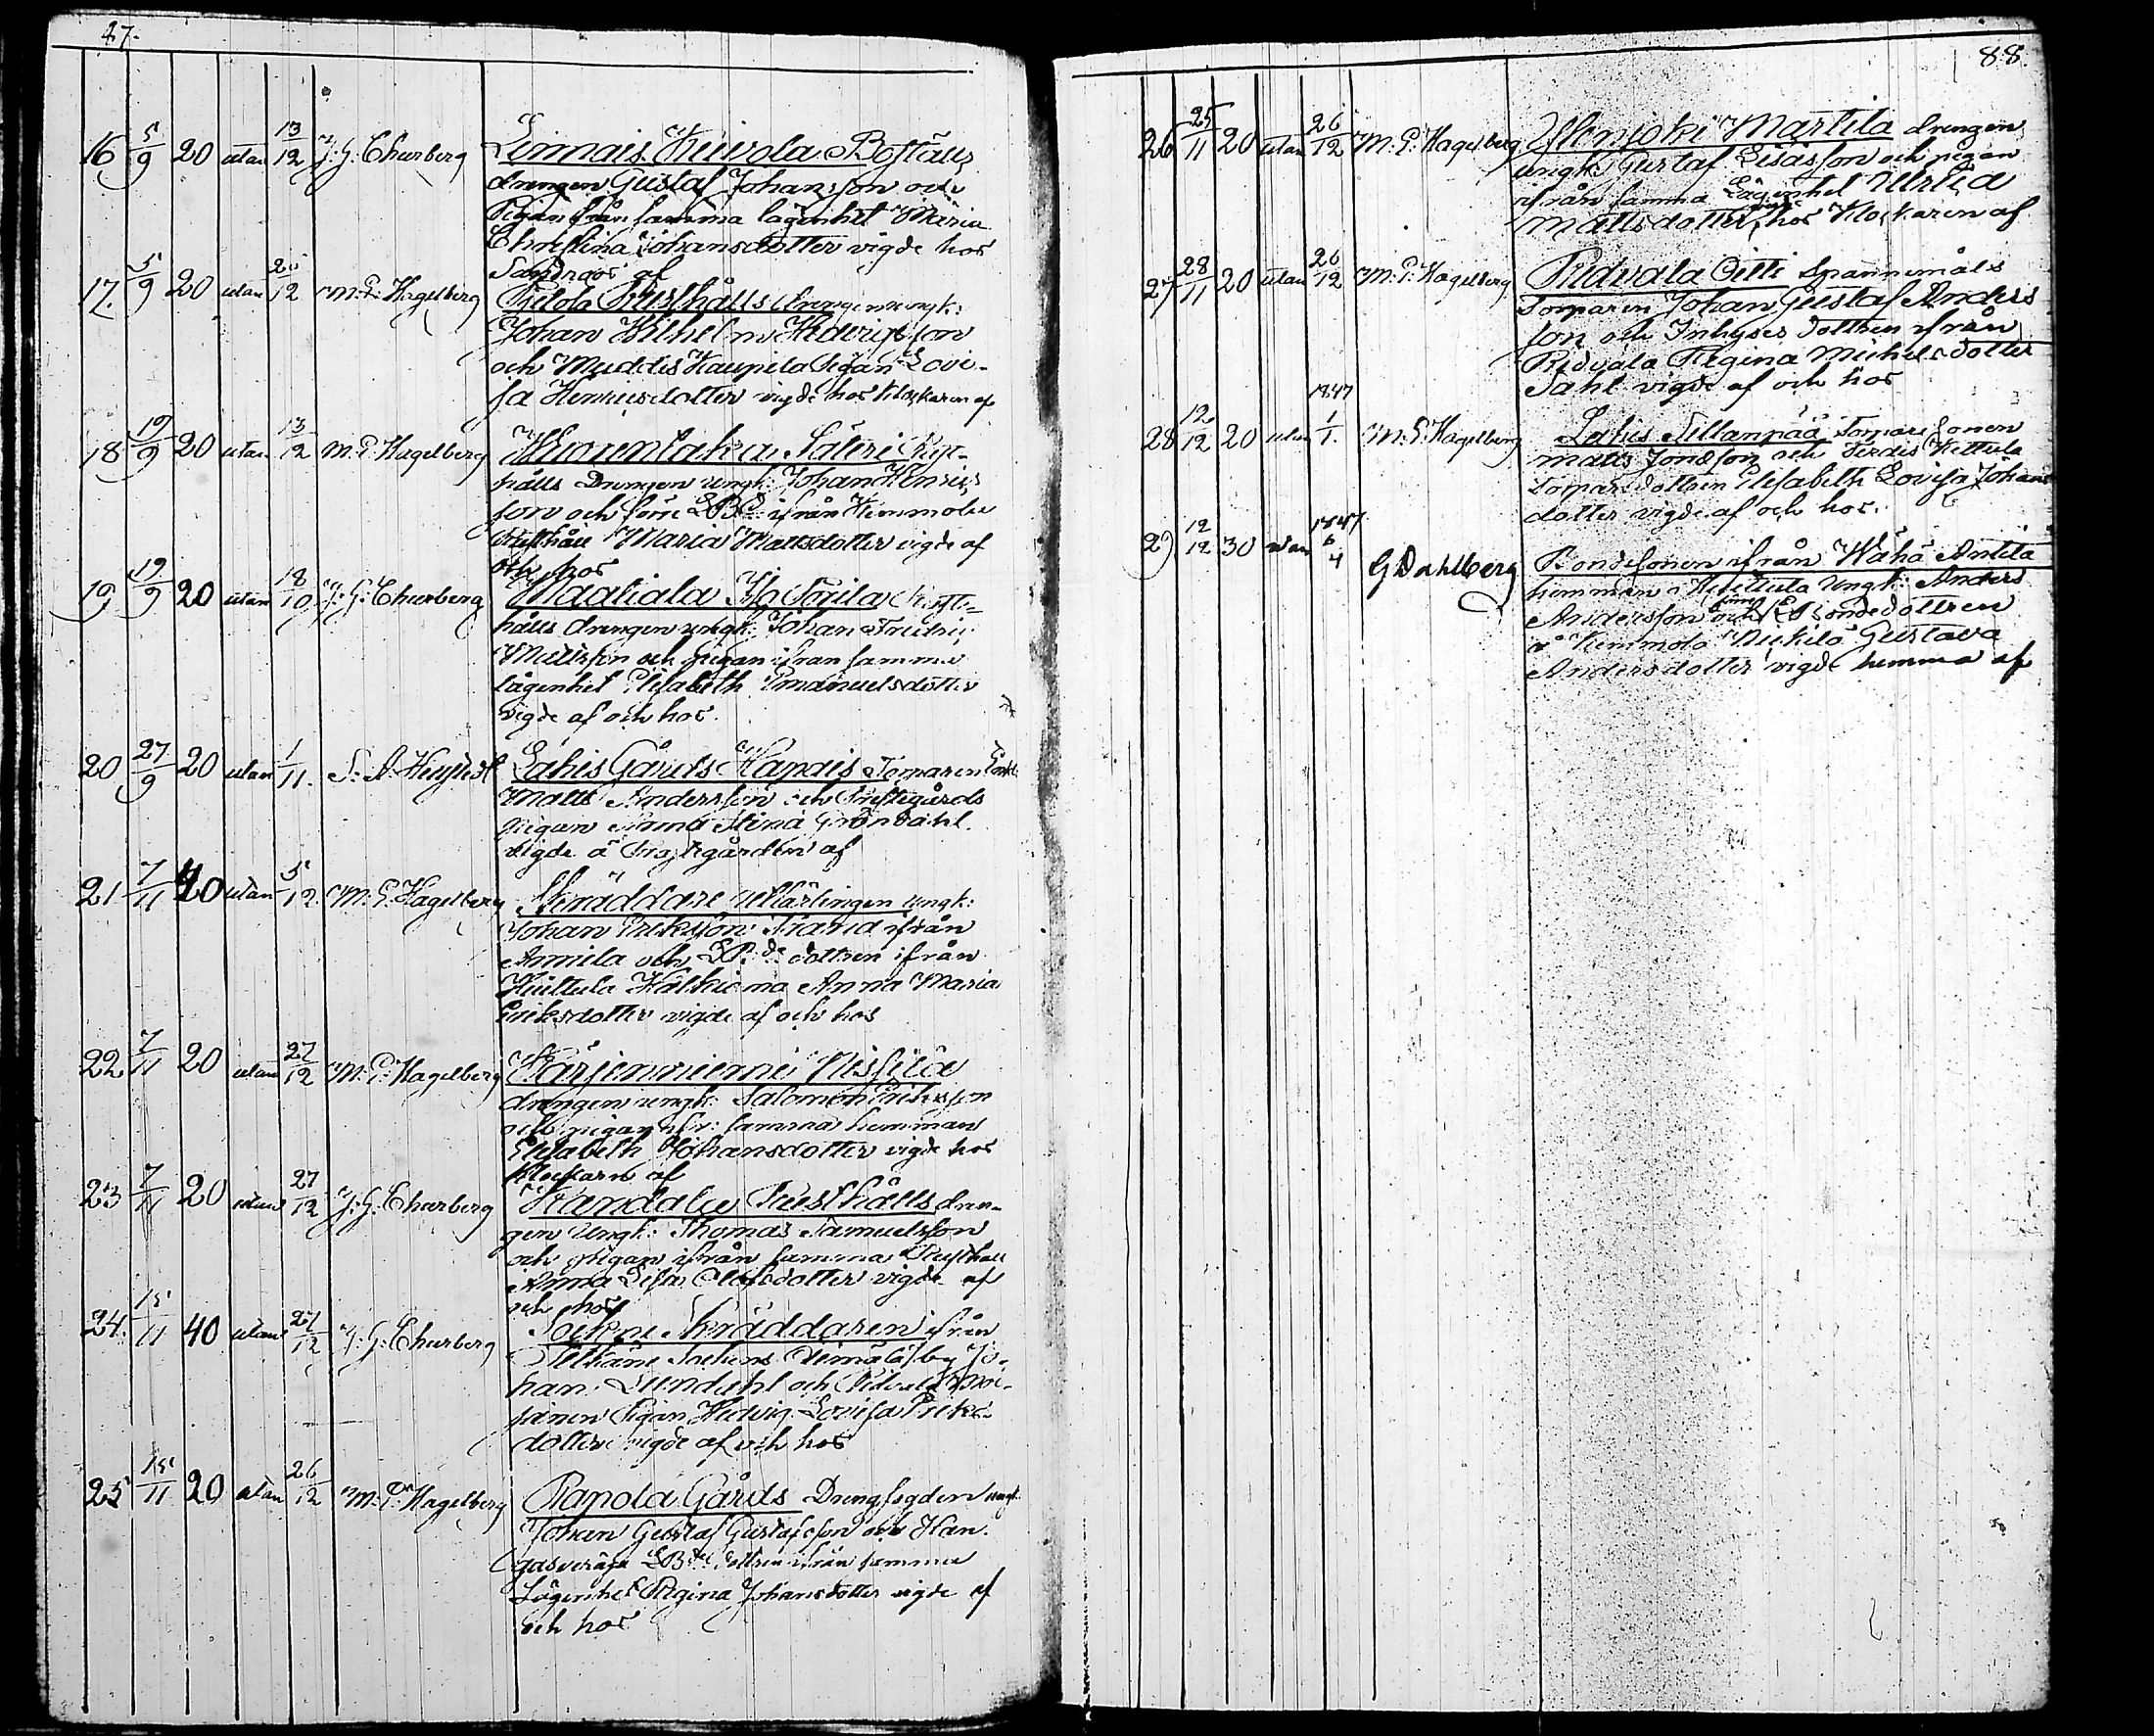 47.
16 5/9 20 utan 13/12 J. G. Churberg Linnais Kuivola Boställs
drengen Gustaf Johansson och
Pigan från samma lägenhet Maria
Christina Johansdotter vigde hos
Sandroos af
17. 5/9 20 utan 26/12 M. E. Hagelberg Rusthålls drengen ungk:
Johan Wilhelm Hedrigsson
och Muddis Kaupila Pigan Lovi-
sa Henricsdotter vigde hos Klockaren af
18 19/9 20 utan 13/12 M. E. Hagelberg Huorentaka Säteri Rust-
hålls Drengen ungk: Johan Henrics
son och förre LBd: ifrån Hemmola
Rusthåll Maria Mattsdotter vigde af
och hos
19 19/9 20 utan 18/10 J. G. Churberg Maatiala Yli Rust-
hålls drengen ungk: Johan Fredric
och pigan ifrån samma
lägenhet Elisabeth Emanuelsdotter
vigde af och hos.
20 27/9 20 utan 1/11. S. A. Lahis Gårds Torparen Enkl:
Matts Andersson och Prestegårds
Pigan Anna Stina Gröndahl
vigde å Prestgården af
21 7/11 40 utan 5/12 M. E. Hagelberg Skräddare ungk:
Johan Eriksson Strand ifrån
Annila och LB.de dottren ifrån
Huittula Anna Maria
Eriksdotter vigde af och hos
22 7/11 20 utan 27/12 M. E. Hagelberg Kärjenniemi Nissilä
drengen ungk: Salomon Eriksson
och pigan ifr: samma hemman
Elisabeth Johansdotter vigde hos
Klockarn af
23 7/11 20 utan 27/12 J. G. Churberg Kandala Rusthålls dren-
gen Ungk: Thomas Samuelsson
och Pigan ifrån samma Rusthåll
Anna Lisa Olofsdotter vigde af
och hos
24. 15/11 40 utan 27/12 J. G. Churberg Sockne Skräddaren ifrån
Sockens by Jo-
han Lundahl och
Pigan Hedvig Lovisa Eriks-
dotter vigde af och hos
25 15/11 20 utan 26/12 M. E. Hagelberg Rapola Gårds Drengfogden ungk:
Johan Gustaf Gustafsson och Kan-
gasveräjä LBde dottren ifrån samma
Lägenhet Regina Johansdotter vigde af
och hos
88.
26 25/11 20 utan 26/12 M. E. Hagelberg Martila drengen
ungk: Gustaf Esaisson och pigan
ifrån samma Lägenhet Ulrica
Mattsdotter, vigde hos Klockaren af
27 28/11 20 utan 26/12 M. E. Hagelberg Ridvala Otti Spannemåls
Torparen Johan Gustaf Anders
son och Inhyses dottren ifrån
Ridvala Regina Michelsdotter
Dahl vigde af och hos
28 12/12 20 utan 1847 1/1. M. E. Hagelberg Lahis Sillanpää Torpare sonen
Matts Jonasson och
Torpare dottren Elisabeth Lovisa Johans
dotter vigde af och hos.
29 12/12 30 utan 1847 6/4 G Dahlberg Bondesonen ifrån Wähä Antila
hemman i Huittula Ungk: Anders
Andersson och förre Bondedottren
Gustava
Andersdotter vigde hemma af